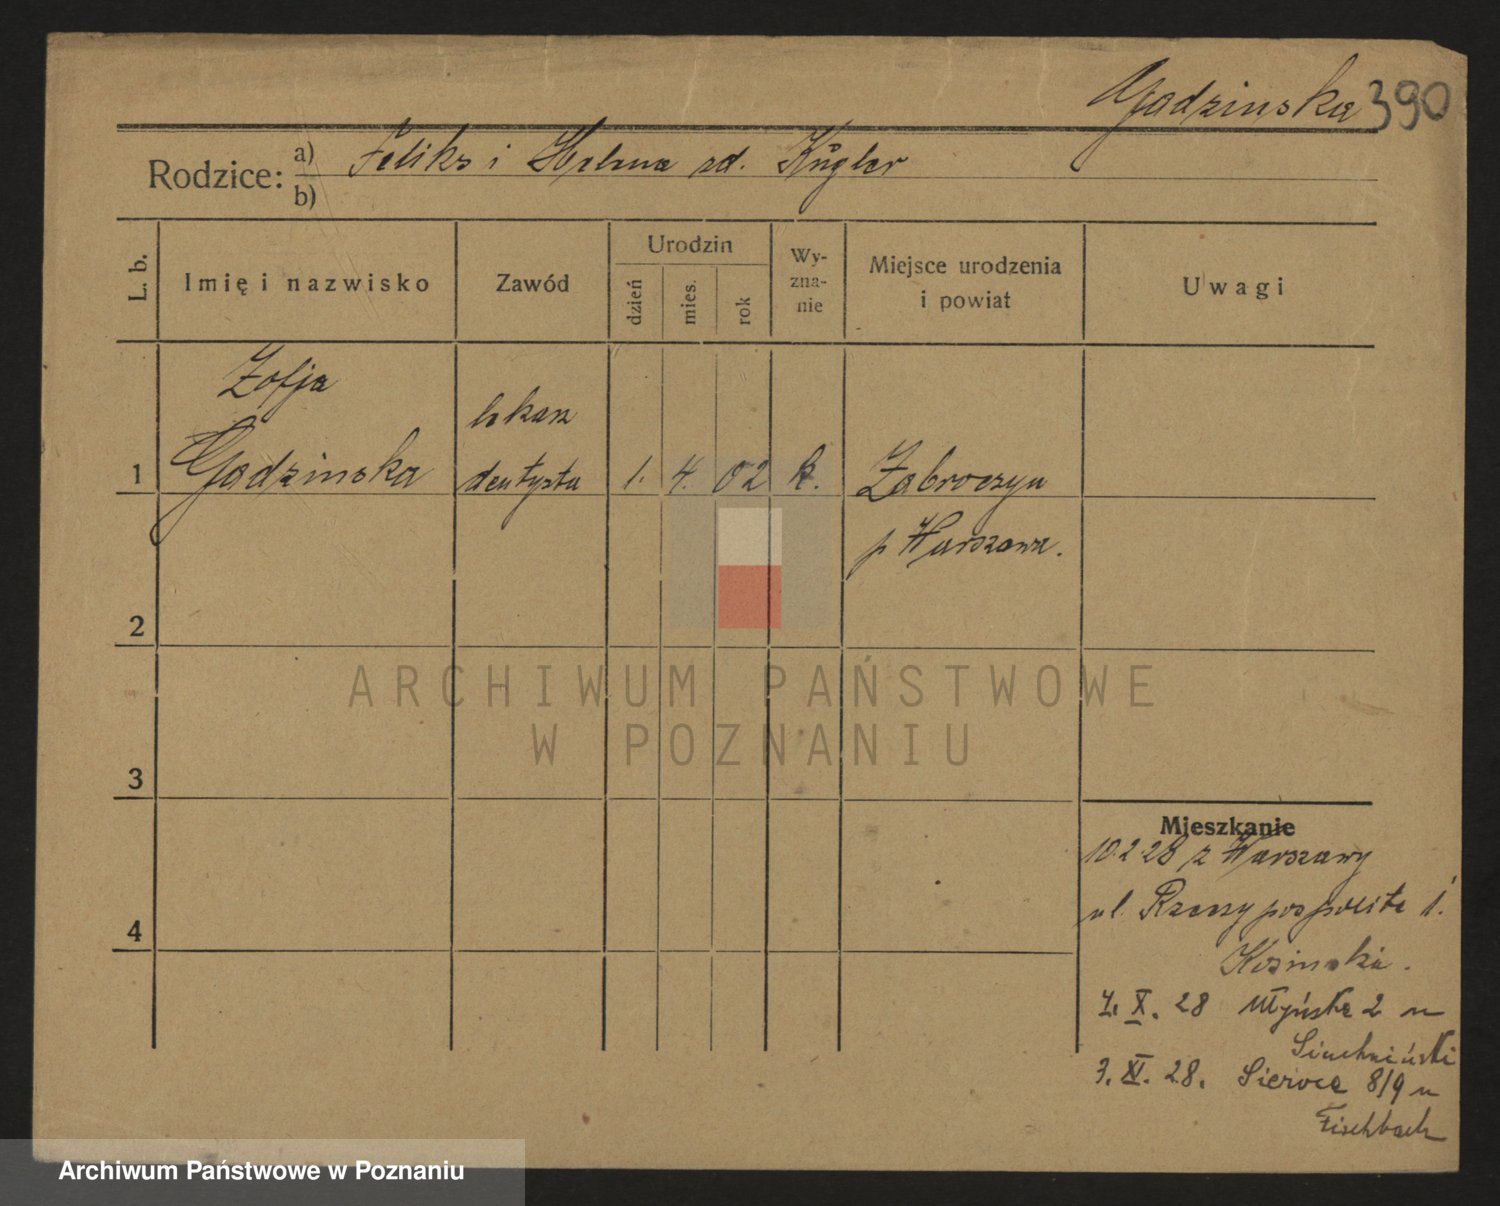 Gadzinska 390
Rodzice: a) Feliks i Helena zd. Kügler
b)
L. b. Imię i nazwisko Zawód Urodzin dzień mies. rok Wy-zna-nie Miejsce urodzenia i powiat Uwagi
Zofja lekarz
1 Gadzinska dentysta 1. 4. 02 k. Zabroczyn
p Warszawa.
2
ARCHIWUM PAŃSTWOWE
W POZNANIU
3
Mieszkanie
10.2.28 z Warszawy
ul. Rzeczypospolita 1.
4
Kosinska.
1. X. 28 Młyńska 2 u
3. XI. 28. Sieroca 8/9 u
Fischbach
Archiwum Państwowe w Poznaniu